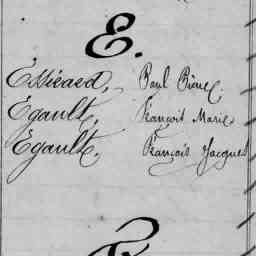 E.
Essicard, Paul Pierre.
Egault, François Marie
Egault, François Jacques
F